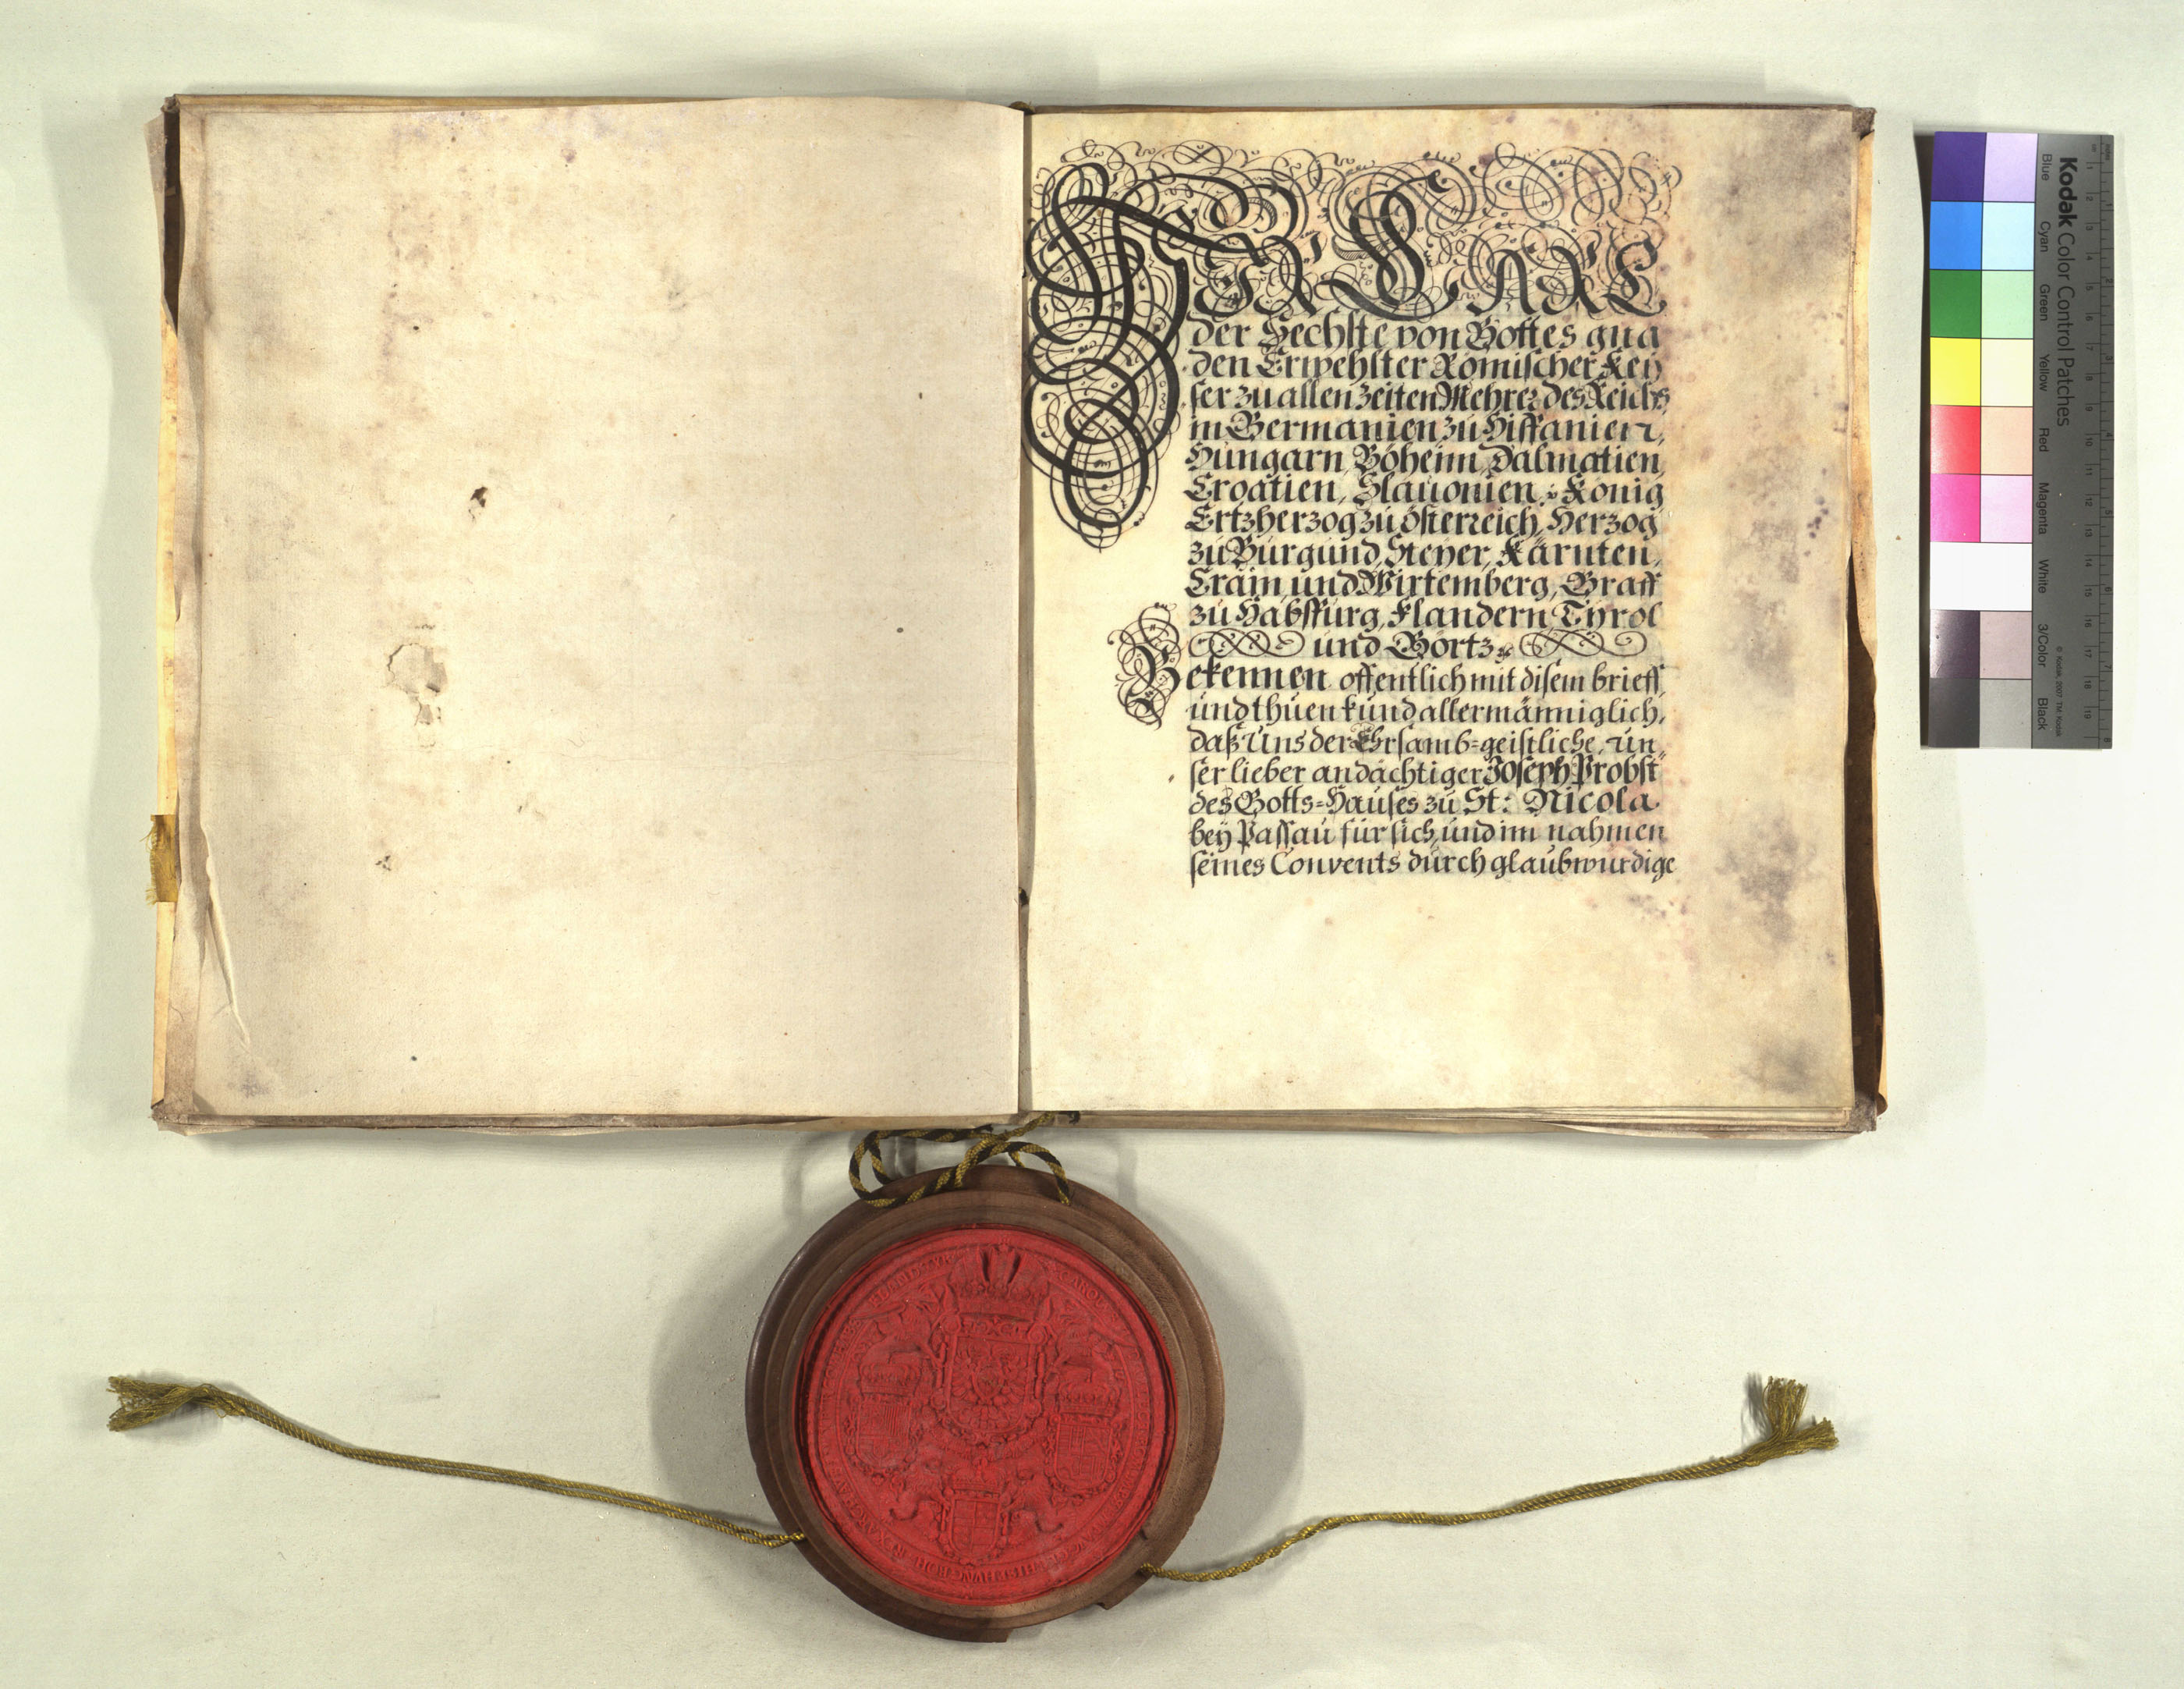 WIR CARL
der Sechste von Gottes gna
den Erwehlter Römischer Key
ser zu allen zeiten Mehrer des Reichs,
in Germanien zu Hispanien,
Hungarn, Böheim, Dalmatien,
Croatien, Slavonien, König
Ertzherzog zu österreich, Herzog
zu Burgund, Steyer, Kärnten,
Crain und Wirtemberg, Graff
zu Habspurg, Flandern Tyrol
und Görtz
Bekennen offentlich mit disem brieff,
und thuen kund allermänniglich,
daß Uns der Ehrsamb=geistliche, un„
ser lieber andächtiger Joseph Probst
des Gotts=Hauses zu St: Nicola
bey Passau für sich, und im nahmen
seines Convents durch glaubwürdige
Kodak Color Control Patches
Blue Cyan Green Yellow Red Magenta White 3/Color Black
© Kodak, 2007 TM: Kodak
1 2 3 4 5 6 7 8 9 10 11 12 13 14 15 16 17 18 19
CAROL